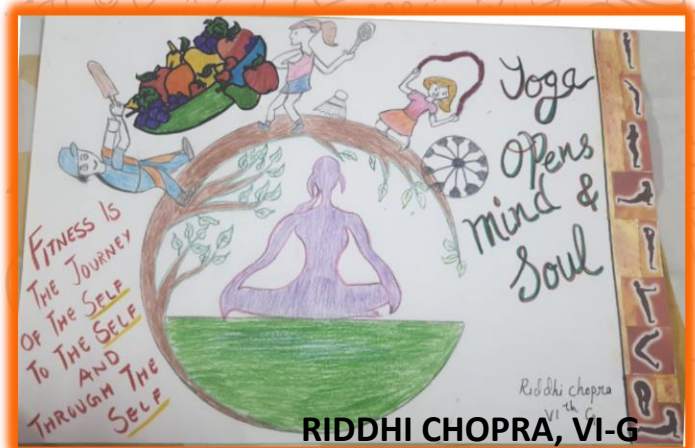 FITNESS IS
THE JOURNEY
OF THE SELF
TO THE SELF
AND
THROUGH THE
SELF
Yoga
Opens
Mind &
Soul
Riddhi chopra
VIth G
RIDDHI CHOPRA, VI-G